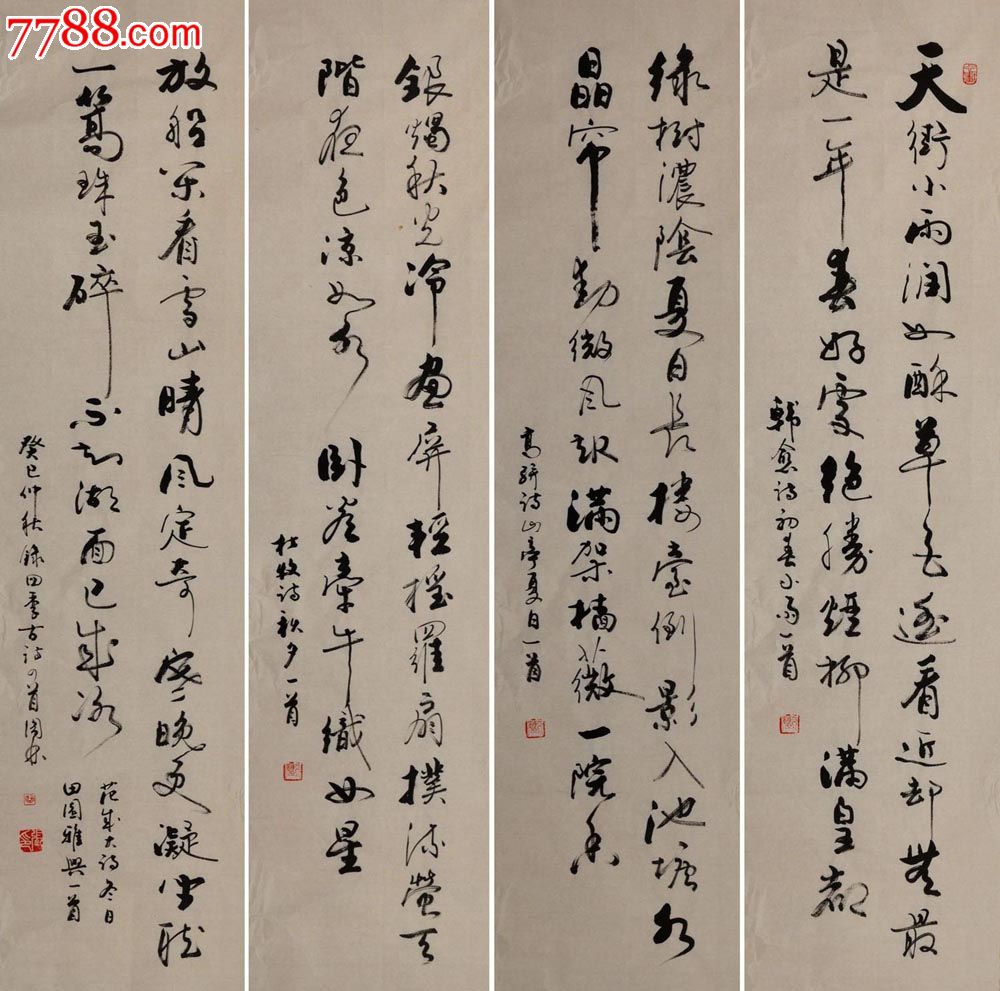 7788.com
天街小雨润如酥草色遥看近却無最
是一年春好处絶勝煙柳满皇都
韓愈诗初春小雨一首
绿樹濃陰夏日長楼臺倒影入池塘水
晶帘動微风起满架蔷薇一院香
高骈诗山亭夏日一首
銀燭秋光冷画屏輕摇羅扇撲流螢天
階夜色凉如水卧看牵牛織女星
杜牧诗秋夕一首
放船闲看雪山晴风定奇寒晚更凝坐聴
一篙珠玉碎不知湖面已成冰
范成大诗冬日
田園雅興一首
癸巳仲秋録四季古诗四首